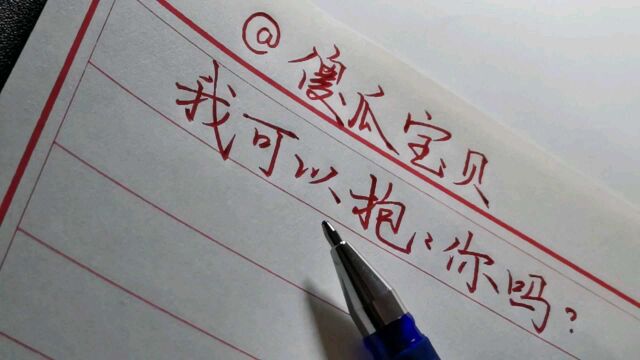 @傻瓜宝贝
我可以抱:你吗?